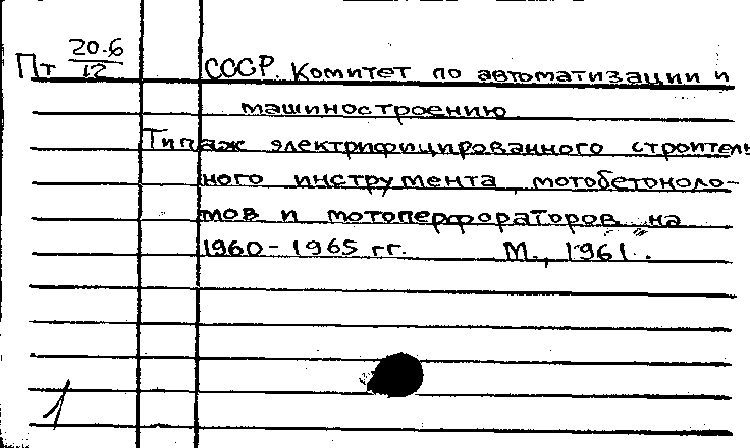 Пт 20.6/12 СССР. Комитет по автоматизации и
машиностроению
Типаж электрифицированного строитель
ного инструмента, мотобетоноло-
мов и мотоперфораторов на
1960-1965 гг. М., 1961.
1